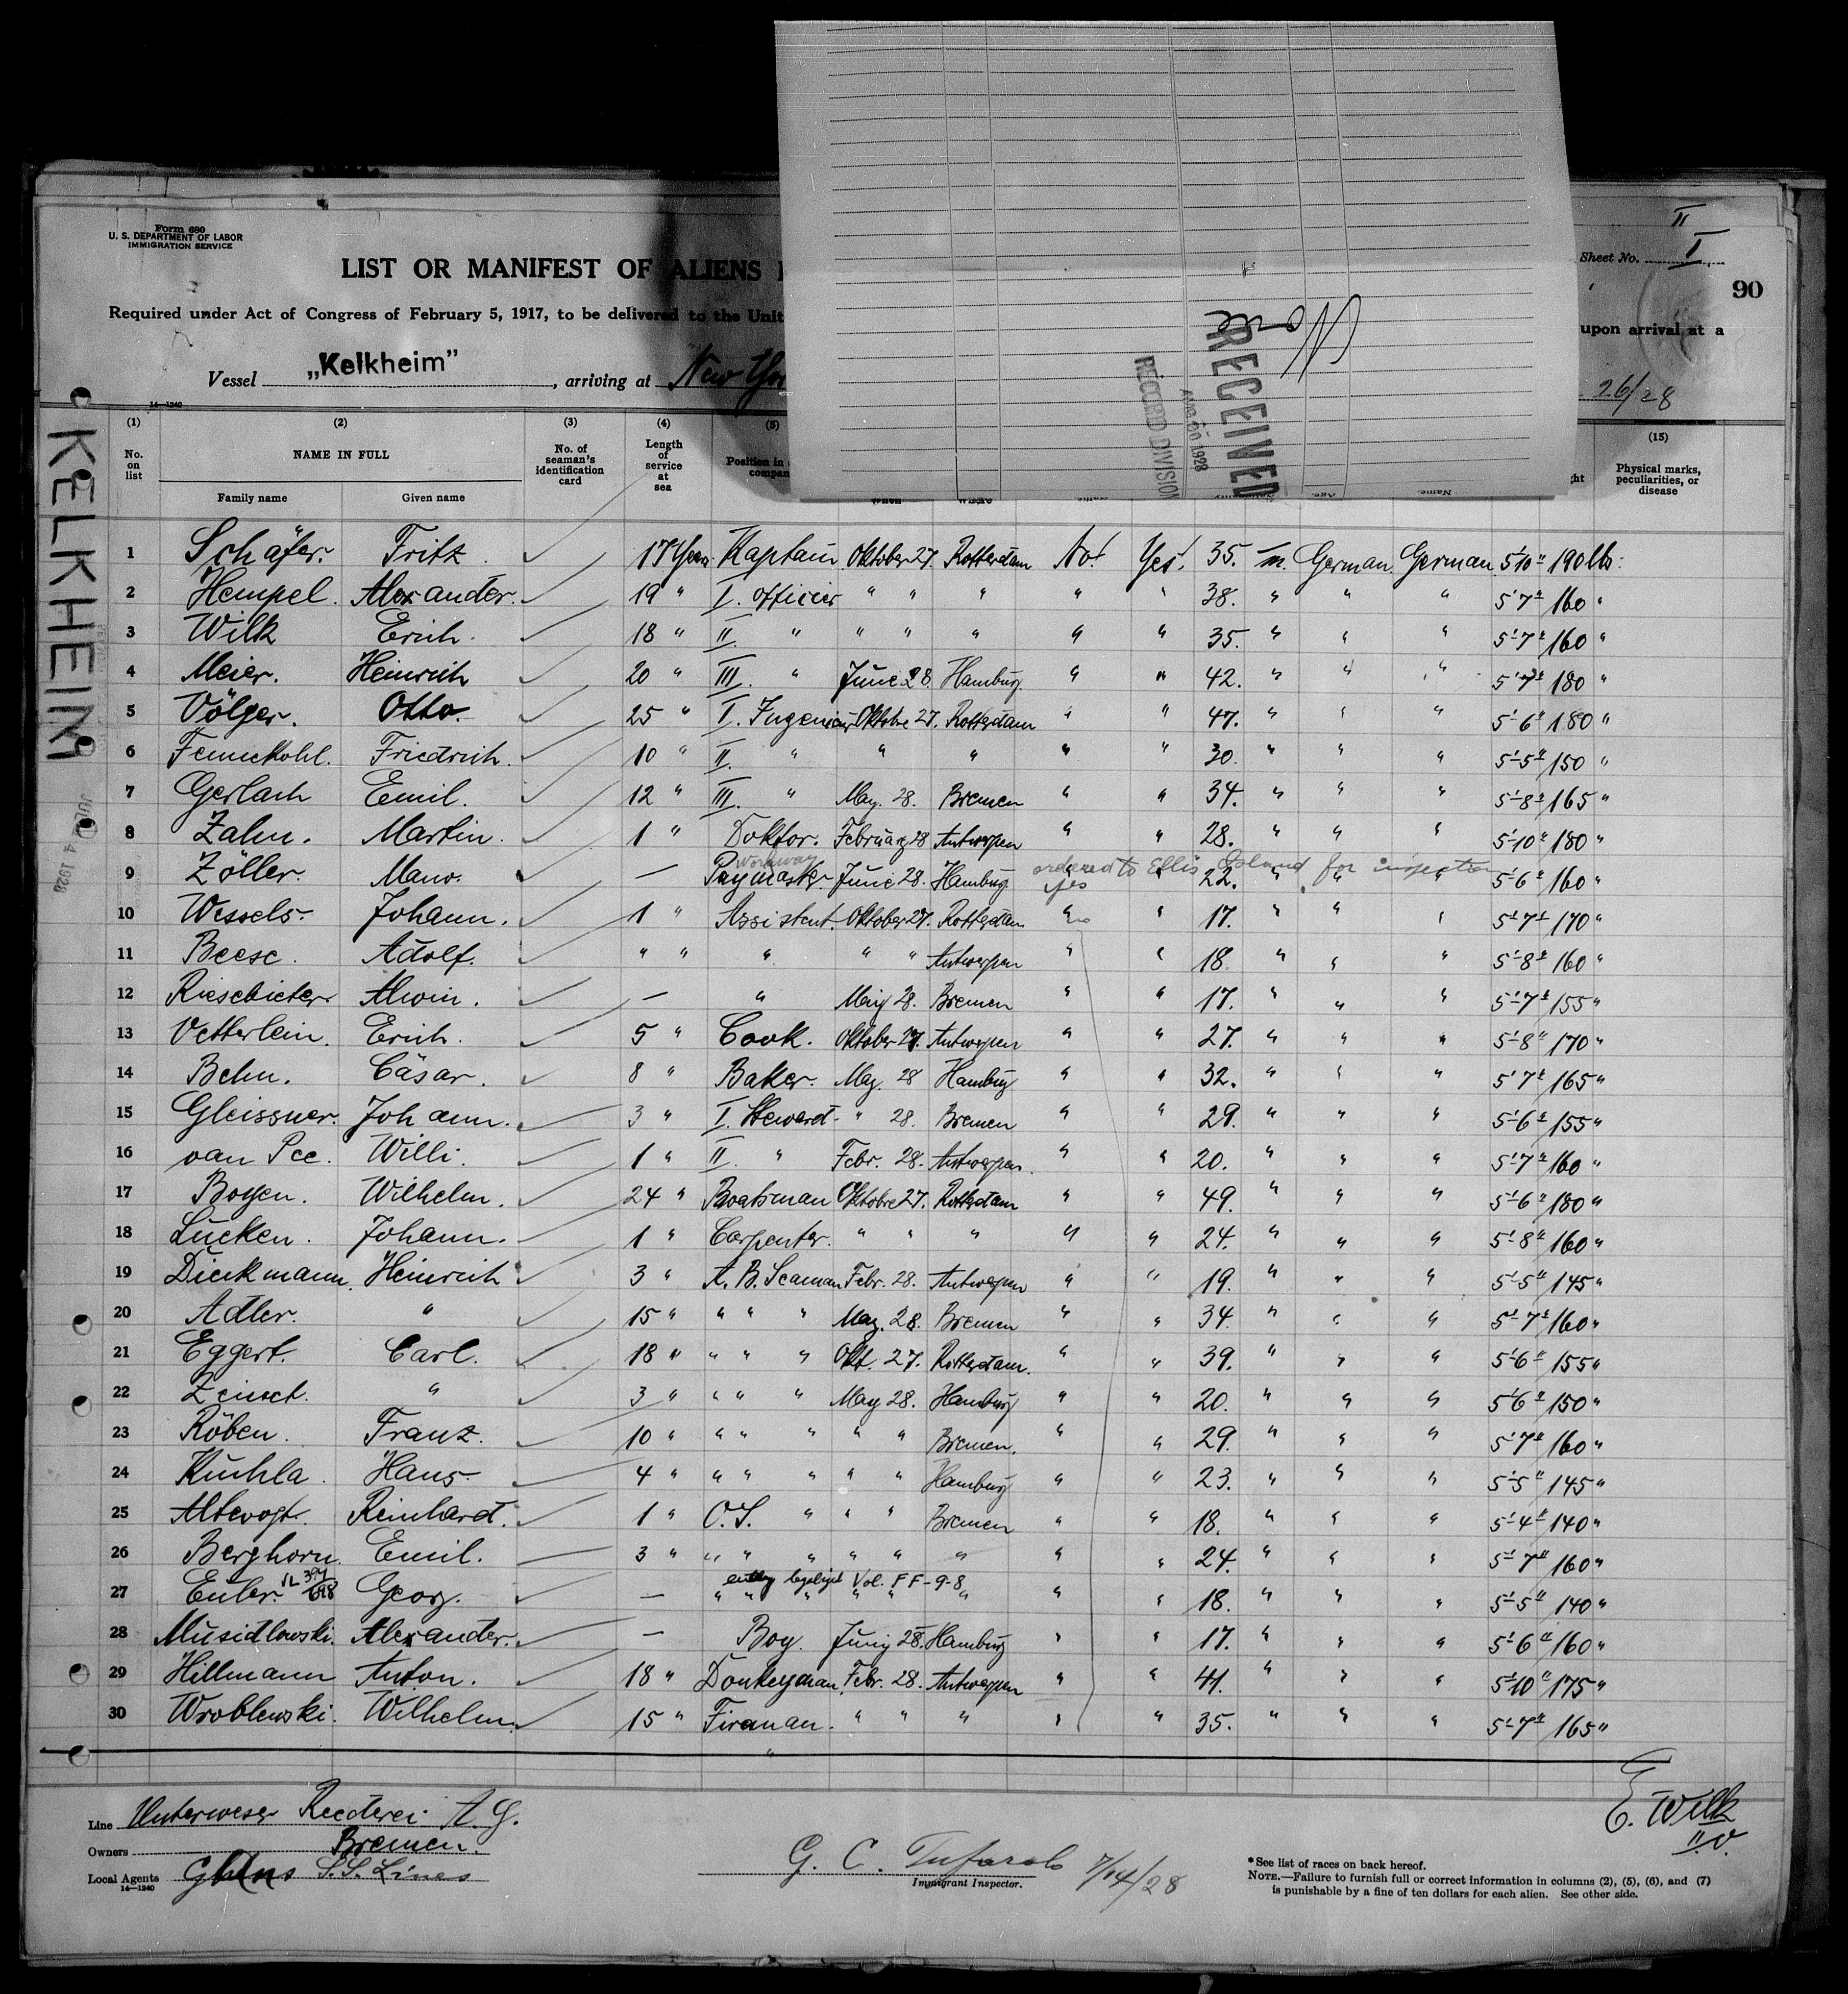 Form 680
U. S. DEPARTMENT OF LABOR
IMMIGRATION SERVICE
LIST OR MANIFEST OF ALIENS
Required under Act of Congress of February 5, 1917, to be delivered to the Unit
upon arrival at a
Sheet No. I
II
90
Vessel „Kelkheim", arriving at New Yor
26/28
None
RECEIVED
AUG 1928
RECORD DIVISION
KELKHEIM
14—1240
(1) (2) (3) (4) (5) (15)
No. on list
NAME IN FULL
Family name Given name
No. of seaman's identification card
Length of service at sea
Position in compan
When Where
Physical marks, peculiarities, or disease
1 Schäfer. Fritz. 17 Years Kaptain Oktober 27. Rotterdam No! Yes! 35. m. German. German. 5'10" 190 lbs.
2 Hempel. Alexander. 19 " I. officier " " " " " 38. " " " 5'7" 160 "
3 Wilk Erich. 18 " II. " " " " " " 35. " " " 5'7" 160 "
4 Meier. Heinrich 20 " III. " June 28. Hamburg. " " 42. " " " 5'7" 180 "
5 Völger. Otto. 25 " I. Ingenieur Oktobre 27. Rotterdam " " 47. " " " 5'6" 180 "
6 Friedrich. 10 " II. " " " " " 30. " " " 5'5" 150 "
7 Gerlach Emil. 12 " III. " May. 28. Bremen " " 34. " " " 5'8" 165 "
8 Zahn. Martin. 1 " Doktor. February 28 Antwerpen " " 28. " " " 5'10" 180 "
workaway ordered to Ellis Island for inspection
9 Zöller. — Paymaster. June 28. Hamburg yes " 22. " " " 5'6" 160 "
10 Wessels. Johann. 1 " Assistent. Oktober 27. Rotterdam " no " 17. " " " 5'7" 170 "
11 Beese. Adolf. " " " " " Antwerpen " " 18 " " " 5'8" 160 "
12 Riesebieter. Alwin. — " May 28. Bremen " " 17. " " " 5'7" 155 "
13 Vetterlein. Erich. 5 " Cook. Oktober 27. Antwerpen " " 27. " " " 5'8" 170 "
14 Behn. Cäsar. 8 " Baker. May. 28 Hamburg " " 32. " " " 5'7" 165 "
15 Gleissner. Johann. 3 " I. Steward. " 28. Bremen " " 29. " " " 5'6" 155 "
16 van Pee. Willi. 1 " II. " Febr. 28. Antwerpen. " " 20. " " " 5'7" 160 "
17 Boyen. Wilhelm. 24 " Boatsman Oktobre 27. Rotterdam " " 49. " " " 5'6" 180 "
18 Lücken. Johann. 1 " Carpenter. " " " " " 24. " " " 5'8" 160 "
19 Dieckmann, Heinrich 3 " A. B. Seaman Febr. 28. Antwerpen " " 19. " " " 5'5" 145 "
20 Adler. " 15 " " " " May. 28. Bremen " " 34. " " " 5'7" 160 "
21 Eggert. Carl. 18 " " " " Okt. 27. Rotterdam. " " 39. " " " 5'6" 155 "
22 " 3 " " " " May 28. Hamburg " " 20. " " " 5'6" 150 "
23 Röben. Franz. 10 " " " " " " Bremen. " " 29. " " " 5'7" 160 "
24 Kuchla. Hans. 4 " " " " " " Hamburg " " 23. " " " 5'5" 145 "
25 Altevogt. Reinhard. 1 " O.S. " " " Bremen " " 18. " " " 5'4" 140 "
26 Berghorn. Emil. 3 " " " " " " " " " 24. " " " 5'7" 160 "
Vol. FF-9-8
27 Euler. Georg. — " " " " " " " " 18. " " " 5'5" 140 "
28 Musidlowski. Alexander. — Boy. Juny 28. Hamburg " " 17. " " " 5'6" 160 "
29 Hillmann Anton. 18 " Donkeyman Febr. 28. Antwerpen " " 41. " " " 5'10" 175 "
30 Wroblewski. Wilhelm. 15 " Fireman. " " " " " 35. " " " 5'7" 165 "
Line Unterweser Reederei A.G.
Owners Bremen.
Local Agents S.S. Lines
14—1240
G. C. Tufarolo 7/14/28
Immigrant Inspector.
E. Wilk
II. O.
*See list of races on back hereof.
NOTE.—Failure to furnish full or correct information in columns (2), (5), (6), and (7)
is punishable by a fine of ten dollars for each alien. See other side.